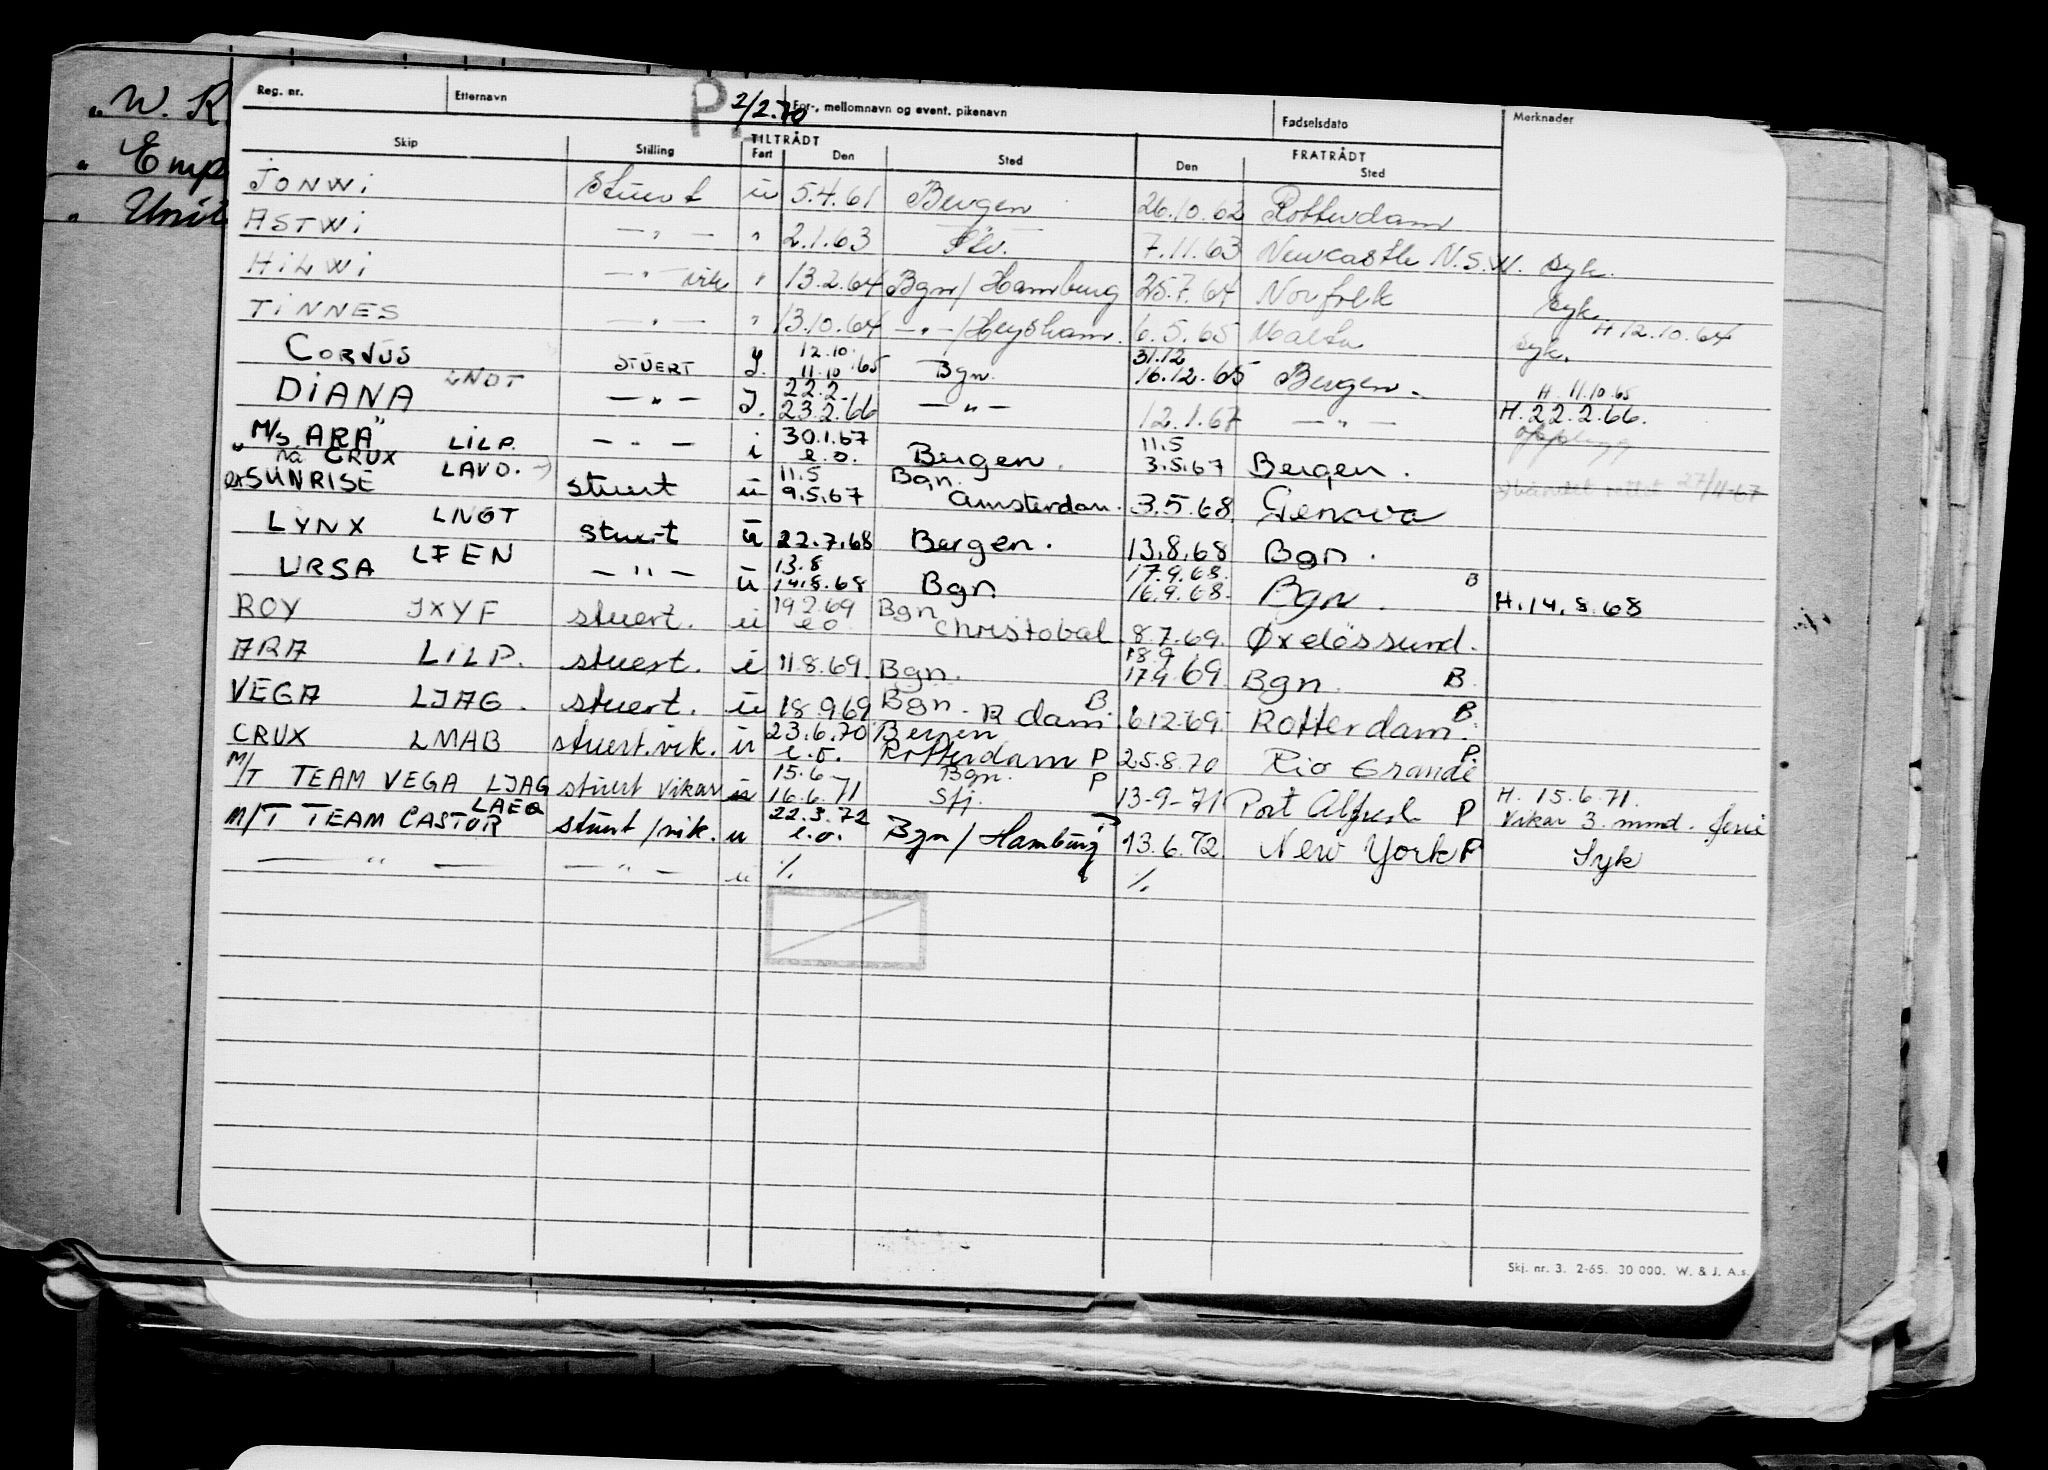 " W. R
" Emp
"
Reg. nr. Etternavn P 2/2.70 For-, mellomnavn og event. pikenavn Fødselsdato Merknader
TILTRÅDT FRATRÅDT
Skip Stilling Fart Den Sted Den Sted
JONWI Stuert u 5.4.61 Bergen 26.10.62 Rotterdam
ASTWI — " — " 2.1.63 7.11.63 Newcastle N.S.W. syk.
HILWI — " — vik " 13.2.64 Bgn/Hamburg 25.7.64 Norfolk syk.
TINNES — " — " 13.10.64 — " —/Heysham 6.5.65 Malta syk. H 12.10.64
CORVUS STUERT J. 12.10 11.10.65 Bgn. 31.12 16.12.65 Bergen. H. 11.10.65
DIANA LNDT — " — J. 22.2 23.2.66 — " — 12.1.67 — " — H. 22.2.66. opplegg
"M/S ARA" LILP. — " — i 30.1.67 e.o. Bergen. 11.5 3.5.67 Bergen.
nå CRUX
SUNRISE LAVO. stuert u 11.5 9.5.67 Bgn. Amsterdam. 3.5.68 Genova 27/11-67
LYNX LNGT stuert u 22.7.68 Bergen. 13.8.68 Bgn.
URSA LFEN — " — u 13.8 14.8.68 Bgn 17.9.68. 16.9.68. Bgn. B H. 14.8.68
ROY JXYF stuert. u 19.2.69 e.o. Bgn Christobal 8.7.69. Øxelössund.
ARA LILP. stuert. i 11.8.69. Bgn. 18.9 17.9 69 Bgn. B.
VEGA LJAG. stuert. u 18.9.69 Bgn. R dam B. 6.12-69. Rotterdam. B.
CRUX LMAB stuert.vik. u 23.6.70 e.o. Bergen Rotterdam P 25.8.70 Rio Grande P.
M/T TEAM VEGA LJAG stuert vikar u 15.6 16.6.71 Bgn. Stj. P 13-9-71 Port Alfred P H. 15.6.71. Vikar 3. mnd.
M/T TEAM CASTOR LAEQ stuert/vik. u 22.3.72 e.o. Bgn/Hamburg P 13.6.72. New York P Syk
— " — — " — u % %
Skj. nr. 3. 2-65. 30 000. W. & J. A.s.